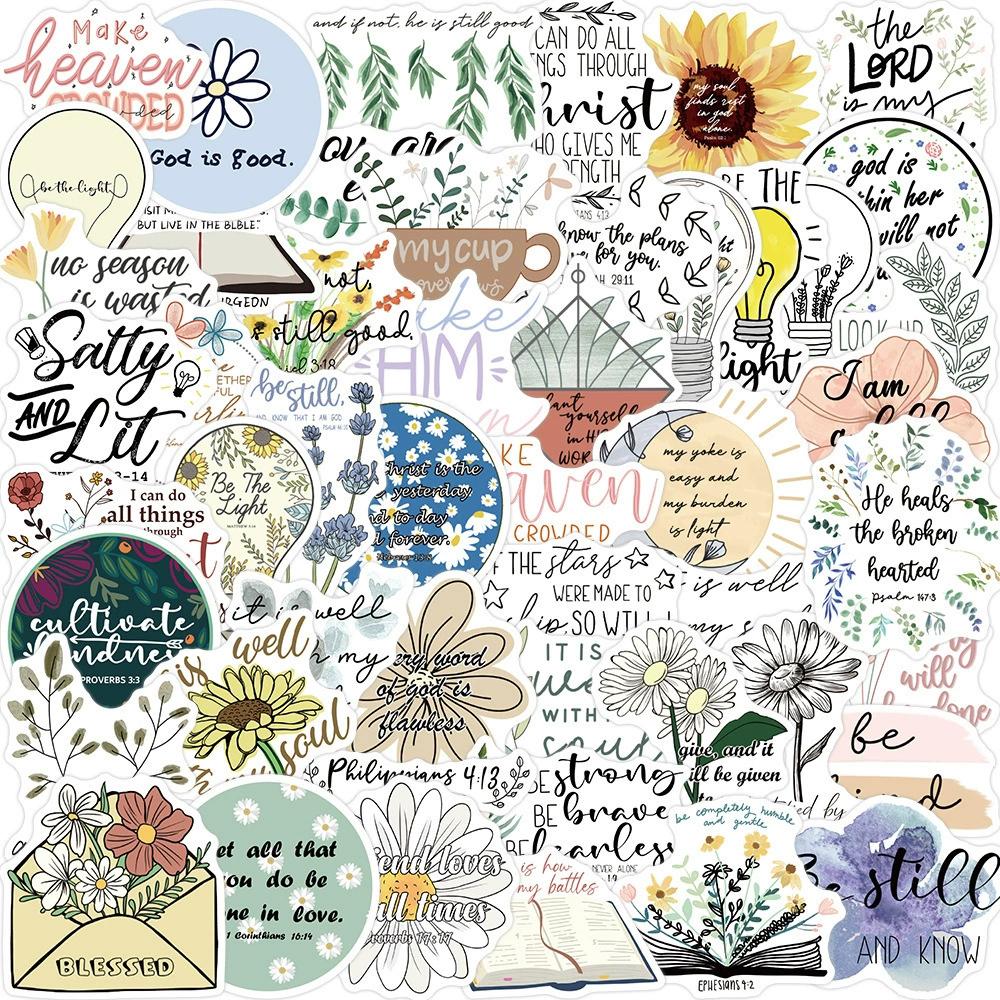 Make
heaven
CROWDED
God is good.
and if not, he is still good
CAN DO ALL
THROUGH
WHO GIVES ME
my soul
finds rest
in god
alone.
the
LORD
is my
be the light
BUT LIVE IN THE BIBLE.
no season
is wasted
my cup
overflows
know the plans
for you.
29:11
BE THE
light
god is
will not
LOOK UP
not,
still good.
3:18
Salty
AND
Lit
HIM
be still,
AND KNOW THAT I AM GOD
PSALM 46:10
yourself
in
I am
Be The
Light
MATTHEW 5:14
christ is the
yesterday
to-day
forever.
CROWDED
my yoke is
easy and
my burden
is light
He heals
the broken
hearted
psalm 147:3
I can do
all things
through
cultivate
kindness
PROVERBS 3:3
it is well
my
is well
soul
word
of god is
flawless
THE stars
WERE MADE TO
SO WILL
is well
my s
IT IS
WITH
give, and it
ill be given
will
be
Philippians 4:13
BE strong
BE brave
BE fearless
NEVER ALONE
1:9
be completely humble
and gentle
EPHESIANS 4:2
BLESSED
et all that
you do be
ne in love.
1 Corinthians 16:14
loves
all times
Proverbs 17:17
is how
my battles
Be still
AND KNOW